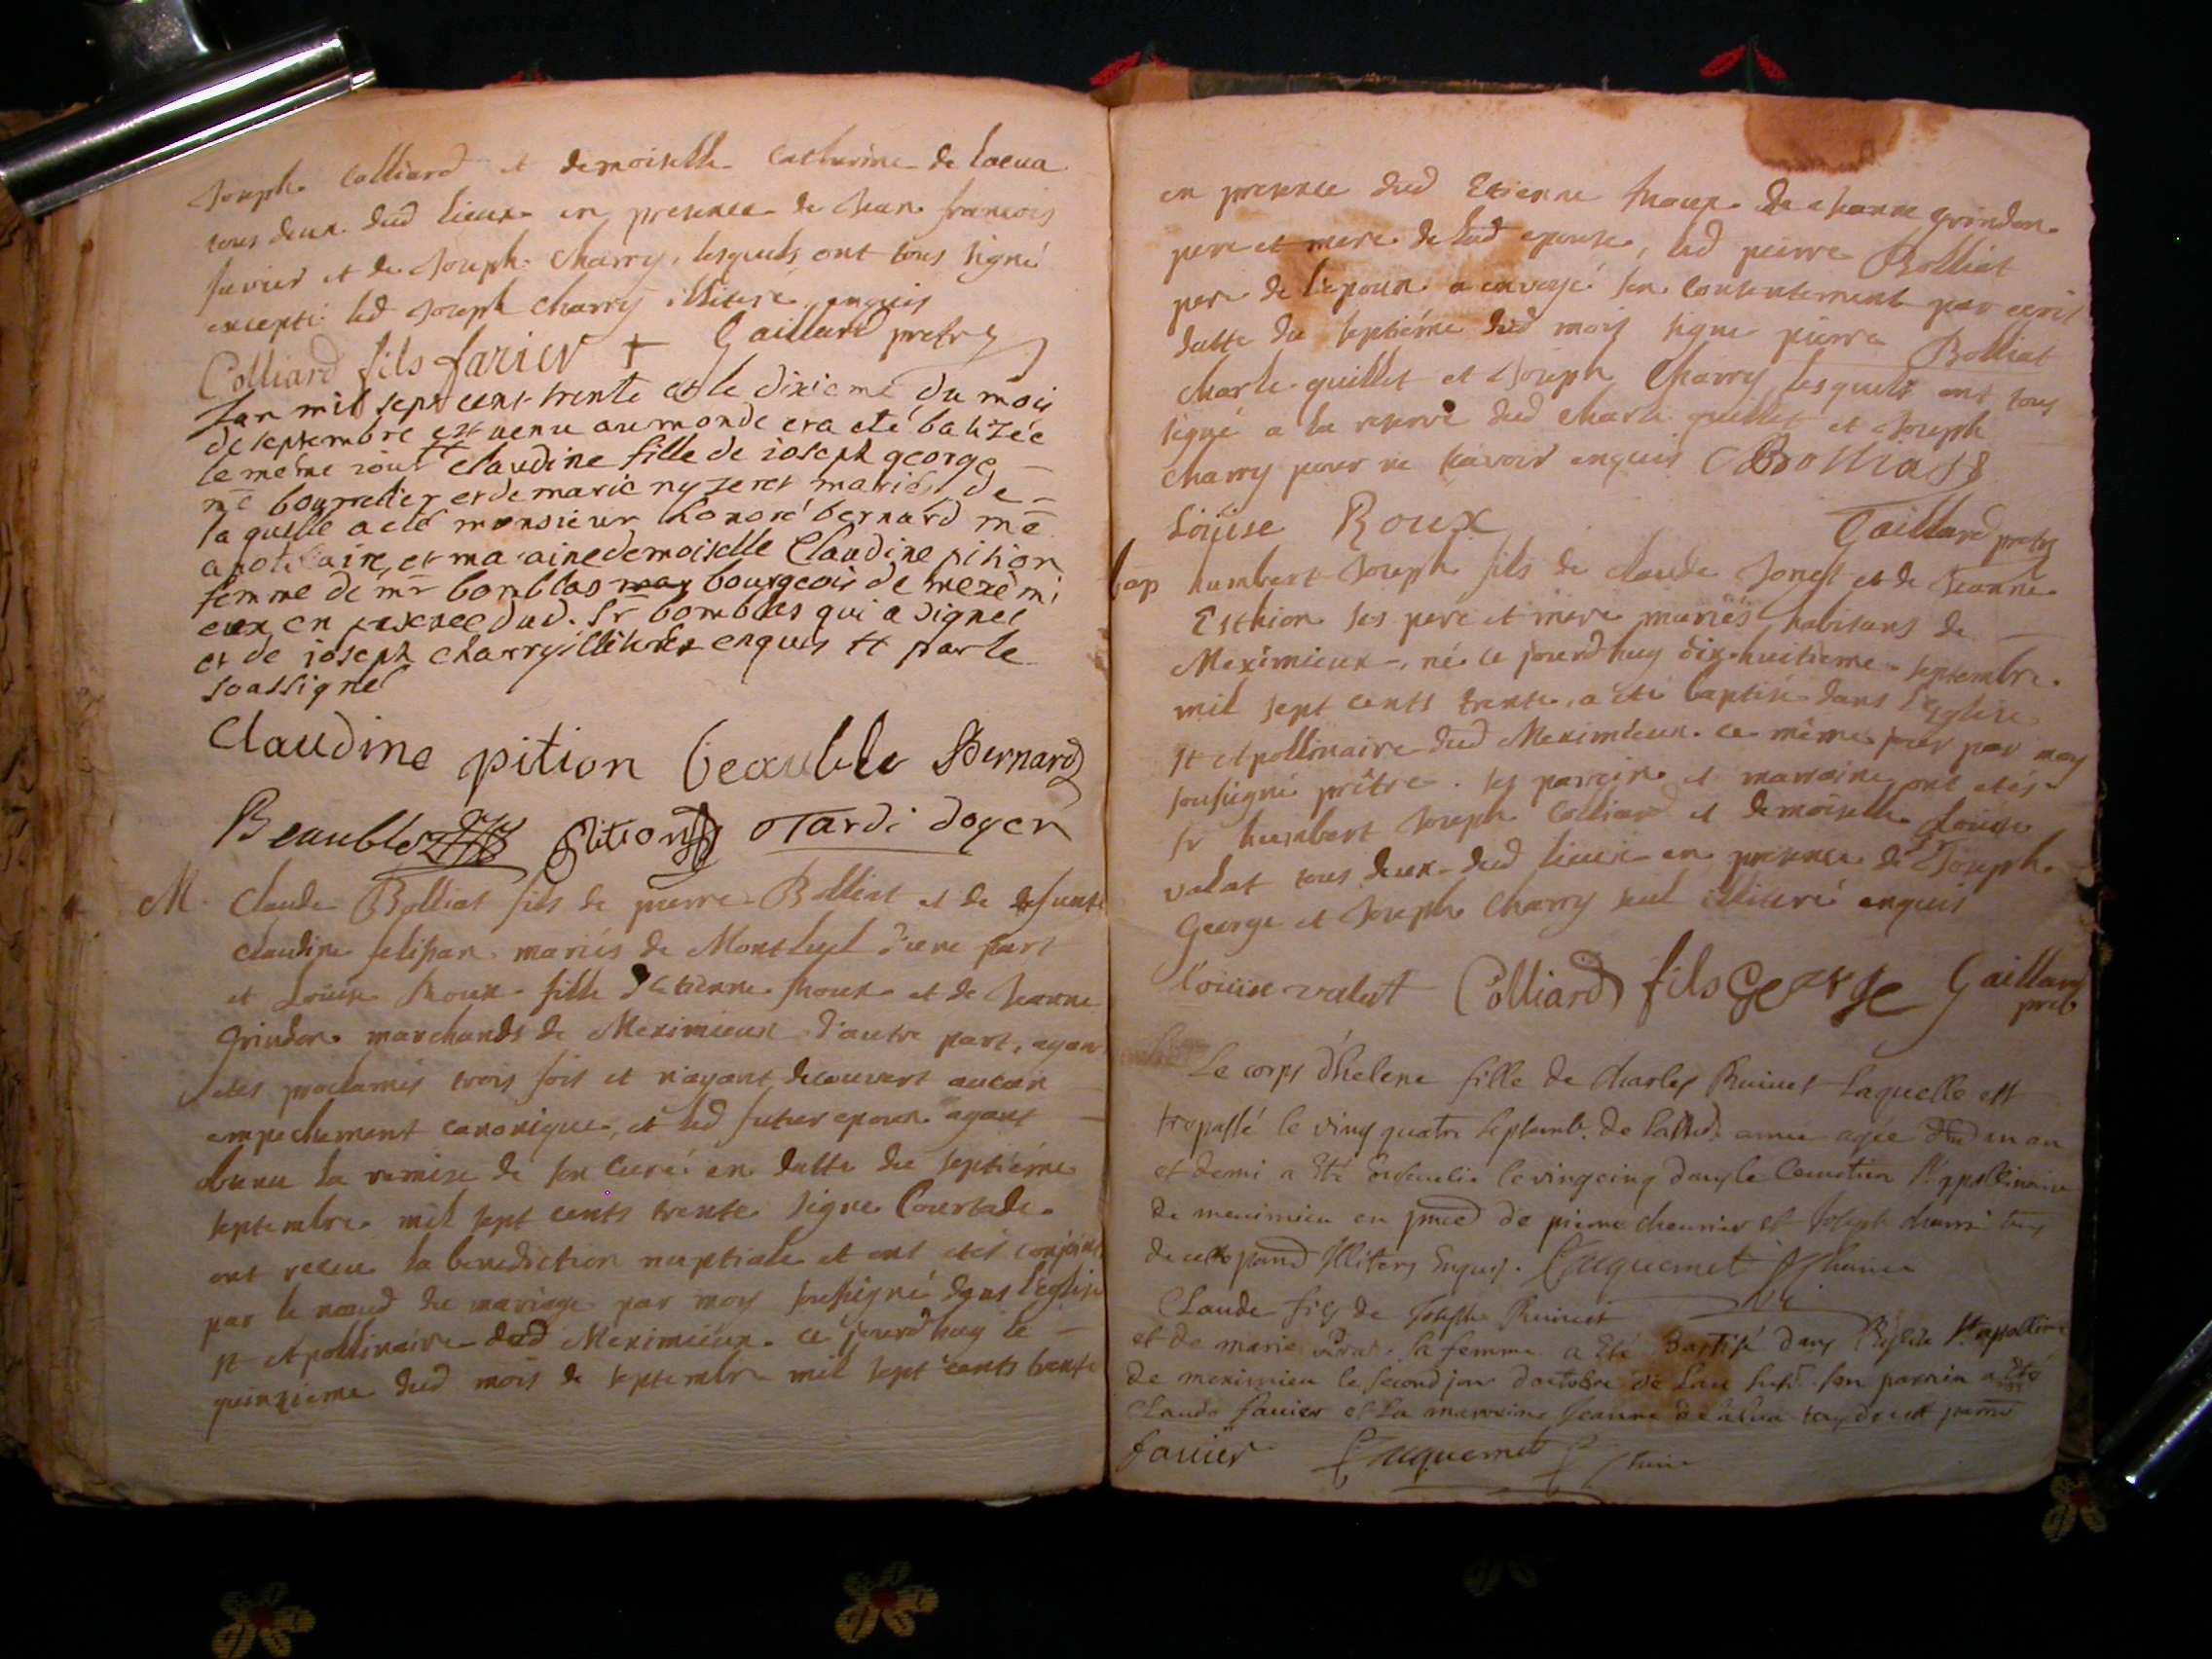 Joseph Colliard et demoiselle Catherine de lacua
tous deux dud lieux en presence de Jean francois
favier et de Joseph Charry, lesquels ont tous signé
excepté led Joseph Charry illiteré enquis
Colliard fils favier + Gaillard pretre
lan mil sept cent trente et le dixieme du mois
de septembre est venu au monde et a eté batizée
le même iour claudine fille de ioseph george
me bourrelier et de marie nyzeret mariés de
laquelle a eté monsieur honoré bernard me
apoticaire, et maraine demoiselle Claudine pition
femme de mr bomblas bourgeois de meximi
eux en presence dud. Sr bomblas qui a signee
et de ioseph charry illiteré enquis et par le
soassigné
Claudine pition beaublé Bernard
Beaublez pition Tardi doyen
M. Claude Bolliat fils de pierre Bolliat et de defunte
Claudine mariés de Montluel d'une part
et Loüise Roux fille d'Etienne Roux et de Jeanne
Grindon marchands de Meximieux d'autre part, ayant
etes proclamés trois fois et n'ayant decouvert aucun
empechement canonique, et led futur epoux ayant
obtenu la remise de son Curé en datte du septiéme
septembre mil sept cents trente signe Courtade
ont receu la benediction nuptiale et ont etés conjoint
par le nœud du mariage par moy soussigné dans l'eglise
st Apollinaire dud Meximieux ce jourd'huy le
quinzieme dud mois de septembre mil sept cents trente
en presence dud Etienne Roux de Jeanne grindon
pere et mere de lad epouse, led pierre Bolliat
pere de l'epoux a envoyé son consentement par ecrit
datte du septiéme dud mois signe pierre Bolliat
Charle guillet et Joseph Charry lesquels ont tous
signé a la reserve dud charle guillet et Joseph
Charry pour ne scavoir enquis Bolliat
Loüise Roux Gaillard pretre
bap humbert Joseph fils de claude Jonest et de Jeanne
Esthion ses pere et mere mariés habitans de
Meximieux, né ce jourd'huy dix huitieme septembre
mil sept cents trente, a eté baptisé dans l'Eglise
st Apollinaire dud Meximieux ce même jour par moy
soussigné prêtre. ses parrein et marraine ont etés
sr humbert Joseph Colliard et demoiselle Louise
valat tous deux dud lieux en presence de Joseph
George et Joseph Charry seul illiteré enquis
loüise valat Colliard fils George Gaillard
pretre
Le corps d'helene fille de Charles Ruinet laquelle est
trepassé le ving quatre septemb. de lad annee agée d'un an
et demi a Eté le vingcinq dans le Cemetiere St appollinaire
de meximieu en de pierre cheurier et Joseph charri
de cette Illiters Enquis. Jacquemet
Claude fils de Joseph Ruinet
et de marie sa femme a Eté Baptisé dans l'Eglise St appollinaire
de meximieu le second jour d'octobre de l'an susd. son parrin a Eté
Claude favier et la marreine Jeanne
favier Jacquemet